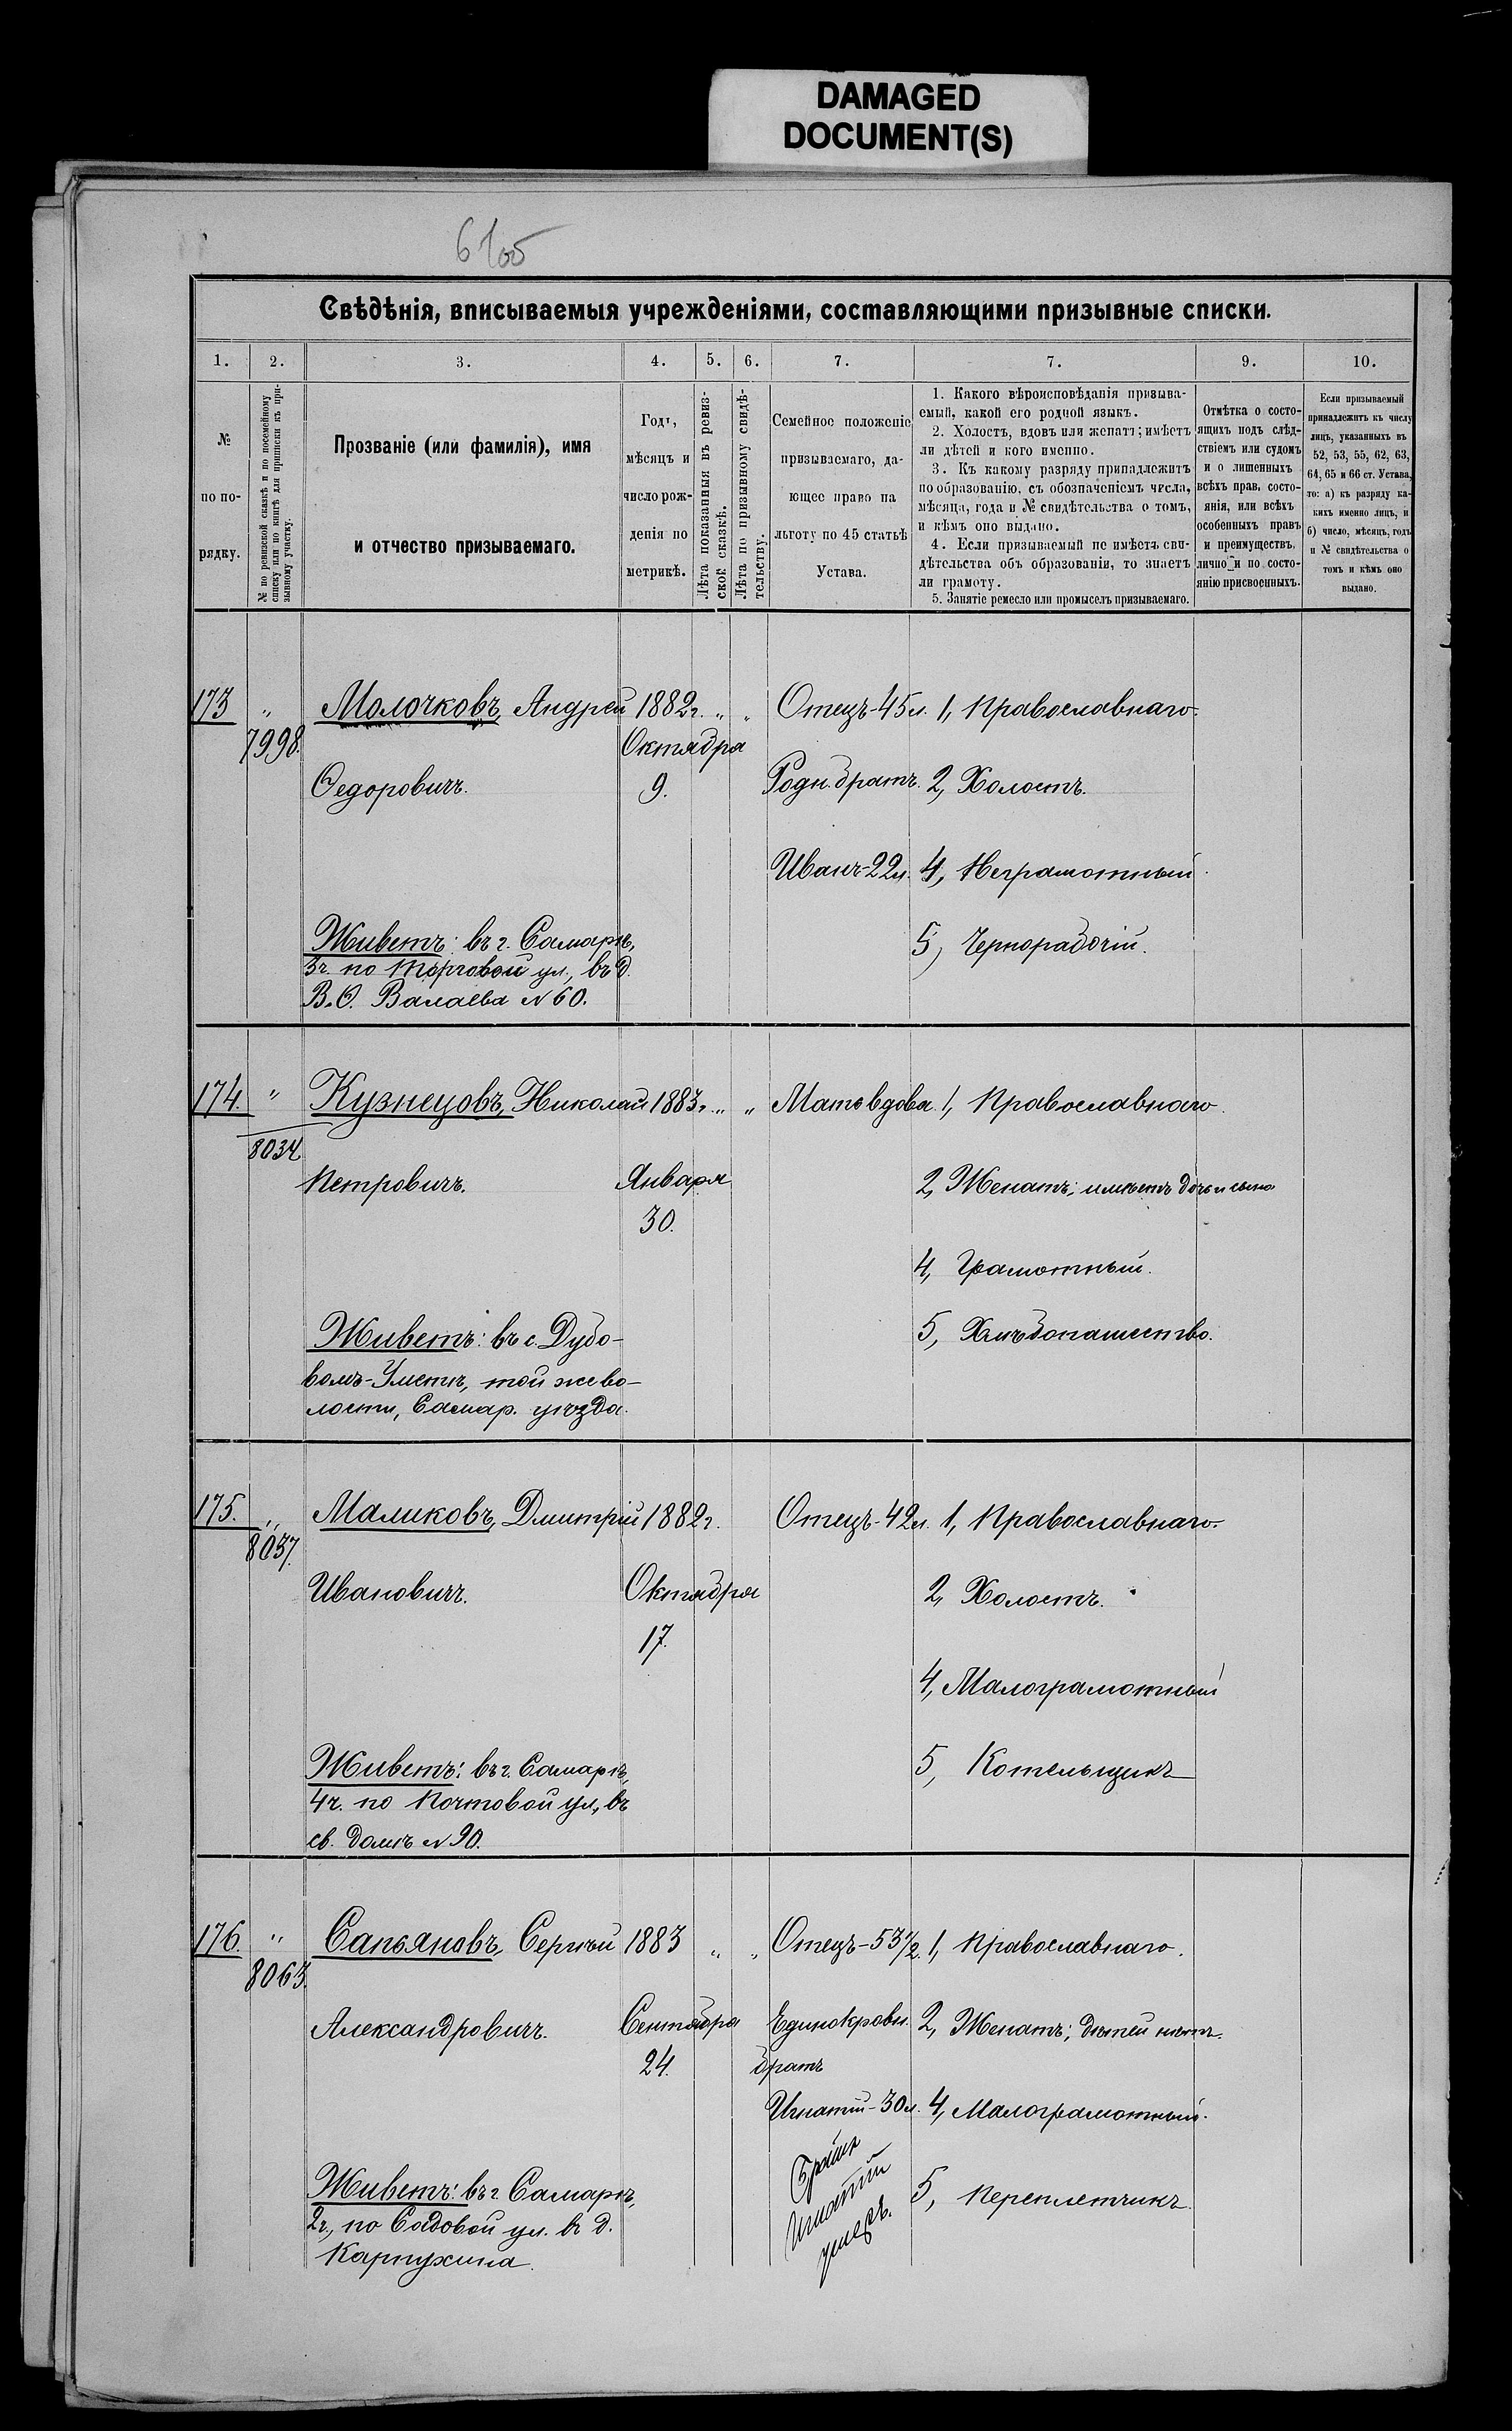 DAMAGED
DOCUMENT(S)
Свѣдѣнія, вписываемыя учрежденіями, составляющими призывные списки.
1. 2. 3. 4. 5. 6. 7. 7. 9. 10.
№
по по-
рядку.
№ по ревизской сказкѣ и по посемейному
списку или по книгѣ для приписки къ при-
зывному участку.
Прозваніе (или фамилія), имя
и отчество призываемаго.
Годъ,
мѣсяцъ и
число рож-
денія по
метрикѣ.
Лѣта показанныя въ ревиз-
ской сказкѣ.
Лѣта по призывному свидѣ-
тельству.
Семейное положеніе
призываемаго, да-
ющее право на
льготу по 45 статьѣ
Устава.
1. Какого вѣроисповѣданія призыва-
емый, какой его родной языкъ.
2. Холостъ, вдовъ или женатъ; имѣетъ
ли дѣтей и кого именно.
3. Къ какому разряду принадлежитъ
по образованію, съ обозначеніемъ числа,
мѣсяца, года и № свидѣтельства о томъ,
и кѣмъ оно выдано.
4. Если призываемый не имѣетъ сви-
дѣтельства объ образованіи, то знаетъ
ли грамоту.
5. Занятіе ремесло или промыселъ призываемаго.
Отмѣтка о состо-
ящихъ подъ слѣд-
ствіемъ или судомъ
и о лишенныхъ
всѣхъ прав. состо-
янія, или всѣхъ
особенныхъ правъ
и преимуществъ,
лично и по состо-
янію присвоенныхъ.
Если призываемый
принадлежитъ къ числу
лицъ, указанныхъ въ
52, 53, 55, 62, 63,
64, 65 и 66 ст. Устава,
то: а) къ разряду ка-
кихъ именно лицъ, и
б) число, мѣсяцъ, годъ
и № свидѣтельства о
томъ и кѣмъ оно
выдано.
173 " Молочковъ, Андрей 1882г. " " Отецъ-45л. 1, Православнаго.
7998. Октября
Ѳедоровичъ. 9. Родн. братъ. 2, Холостъ.
Иванъ-22л. 4, Неграмотный.
Живетъ: въ г. Самарѣ, 5, Чернорабочій.
3ч. по Торговой ул., въ д.
В.Ѳ. Валаева №60.
174. " Кузнецовъ, Николай 1883г. " " Мать вдова. 1, Православнаго.
8034
Петровичъ. Января 2, Женатъ; имѣетъ дочь и сына
30.
4, Грамотный.
Живетъ: въ с. Дубо- 5, Хлѣбопашество.
вомъ-Уметѣ, той же во-
лости, Самар. уѣзда.
175. " Маликовъ, Дмитрій 1882г. Отецъ-42л. 1, Православнаго.
8037.
Ивановичъ. Октября 2, Холостъ.
17.
4, Малограмотный
Живетъ: въ г. Самарѣ, 5, Котельщикъ
4ч. по Почтовой ул., въ
св. домѣ №90.
176. " Сапьяновъ, Сергѣй 1883 " " Отецъ-53½. 1, Православнаго.
8063.
Александровичъ. Сентября Единокровн. 2, Женатъ; дѣтей нѣтъ.
24. братъ
Игнатій-30л. 4, Малограмотный.
Братъ
Игнатій
умеръ.
Живетъ: въ г. Самарѣ, 5, Переплетчикъ.
2ч., по Садовой ул. въ д.
Карпухина.